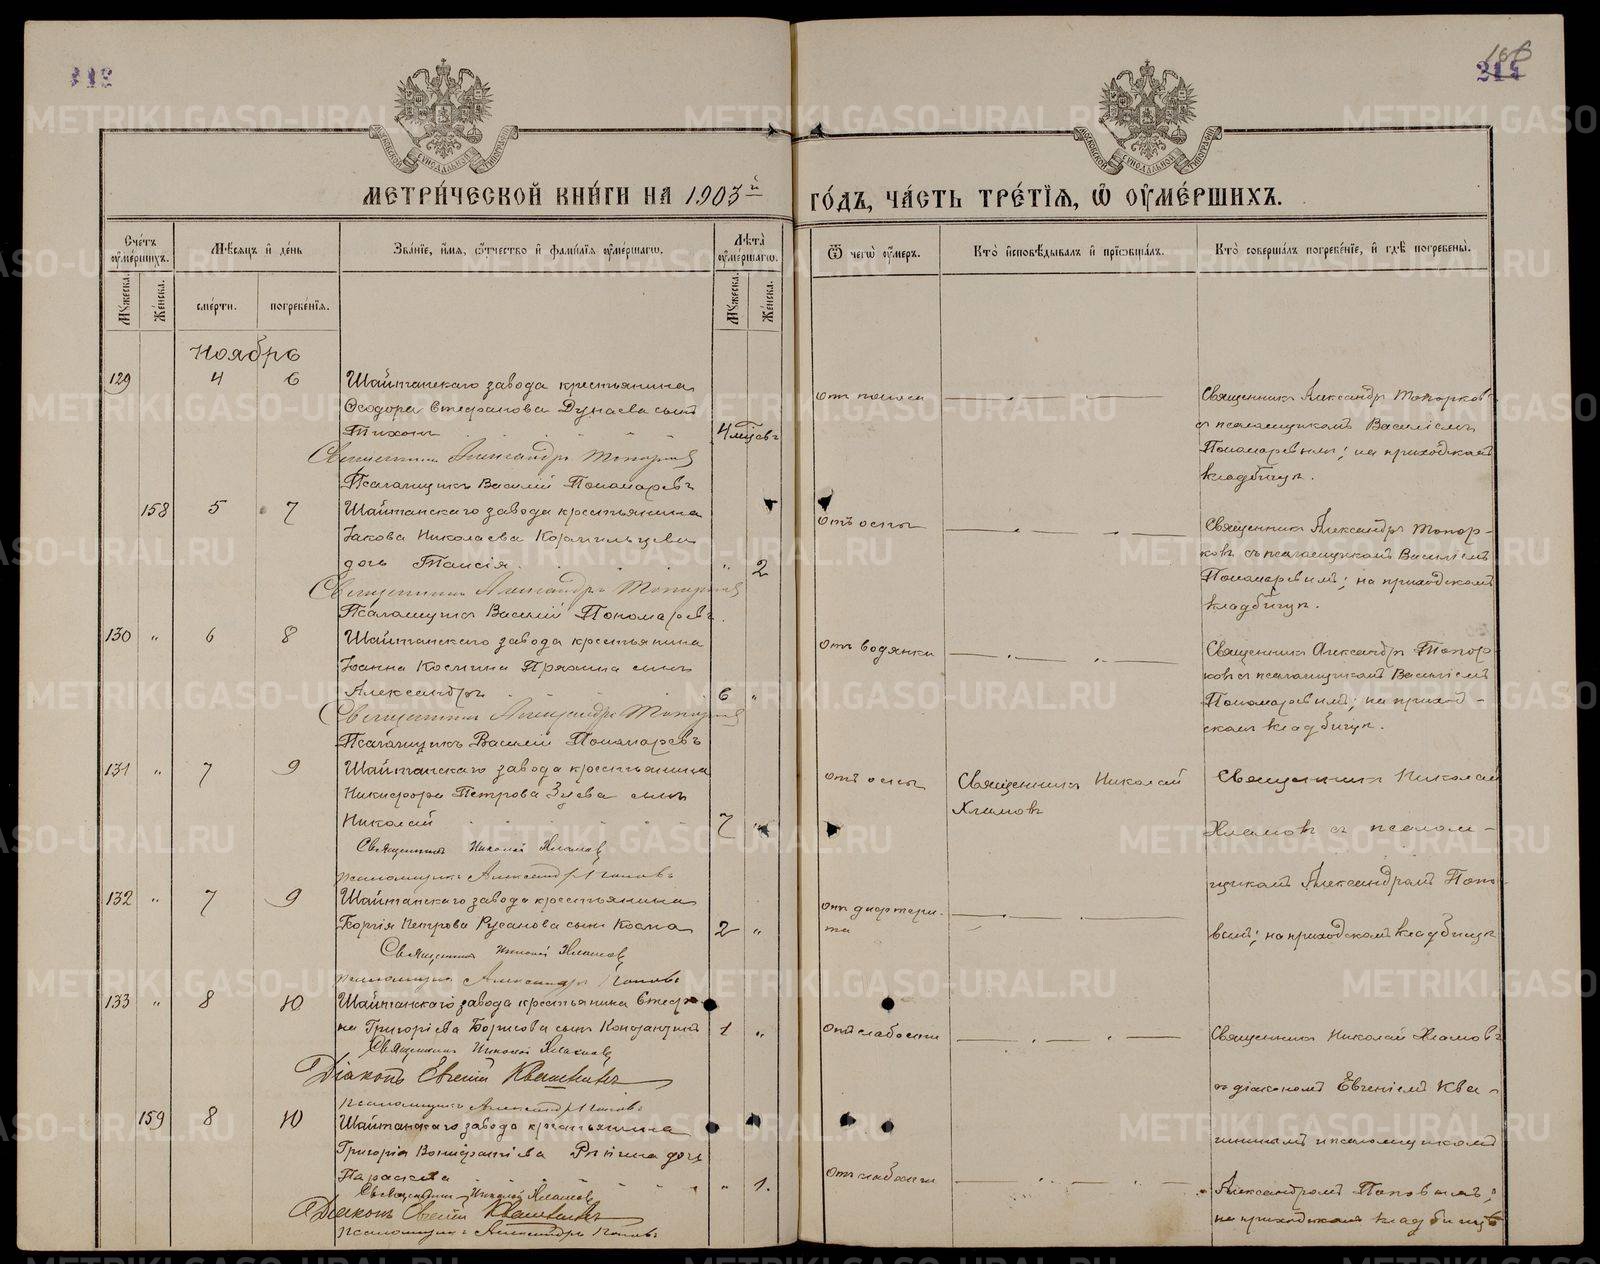 312
166
МЕТРИ́ЧЕСКОЙ КНИ́ГИ НА 1903й
ГО́ДЪ, ЧА́СТЬ ТРЕ́ТІЯ, Ѿ ОУ҆МЕ́РШИХЪ.
Сче́тъ оумершихъ.
Мѣ́сяцъ и де́нь
Зва́ніе, и́мя, о́тчество и фами́лія оуме́ршагѡ.
Лѣта̀ оуме́ршагѡ.
Ѿ чегѡ̀ оу́меръ.
Кто̀ исповѣ́дывалъ и пріѡбща́лъ.
Кто̀ соверша́лъ погребе́ніе, и гдѣ̀ погребены̀.
Мужеска.
Же́нска.
сме́рти.
погребе́нія.
Мужеска.
Же́нска.
Ноябрь
129 4 6 Шайтанскаго завода крестьянина
Ѳеодора Стефанова Дунаева сынъ
Тихонъ 4 мѣсяц.
Священникъ Александръ Топорковъ
Псаломщикъ Василій Пономаревъ
Священникъ Александръ Топорковъ
съ псаломщикомъ Василіемъ
Пономаревымъ; на приходскомъ
кладбищѣ.
158 5 7 Шайтанскаго завода крестьянина
Іакова Николаева Кормильцева
дочь Таисія " 2
Священникъ Александръ Топорковъ
Псаломщикъ Василій Пономаревъ.
отъ оспы
Священникъ Александръ Топор-
ковъ съ псаломщикомъ Василіемъ
Пономаревымъ; на приходскомъ
кладбищѣ.
130 " 6 8 Шайтанскаго завода крестьянина
Іоанна Космина Пряхина сынъ
Александръ 6 "
Священникъ Александръ Топорковъ
Псаломщикъ Василій Пономаревъ
отъ водянки
Священникъ Александръ Топор-
ковъ съ псаломщикомъ Василіемъ
Пономаревымъ; на приход-
скомъ кладбищѣ.
131 " 7 9 Шайтанскаго завода крестьянина
Никифора Петрова Зуева сынъ
Николай 7 "
Священникъ Николай Хламовъ
псаломщикъ Александръ Поповъ
отъ оспы
Священникъ Николай
Хламовъ
Священникъ Николай
Хламовъ съ псалом-
щикомъ Александромъ Попо-
вымъ; на приходскомъ кладбищѣ
132 " 7 9 Шайтанскаго завода крестьянина
Георгія Петрова Русанова сынъ Косма 2 "
Священникъ Николай Хламовъ
псаломщикъ Александръ Поповъ
отъ дифтери-
та
133 " 8 10 Шайтанскаго завода крестьянина Стефа-
на Григоріева Борисова сынъ Константинъ 1 "
Священникъ Николай Хламовъ
Діаконъ Евгеній Квашнинъ
псаломщикъ Александръ Поповъ
Отъ слабости
Священникъ Николай Хламовъ
съ діакономъ Евгеніемъ Ква-
шнинымъ и псаломщикомъ
Александромъ Поповымъ;
на приходскомъ кладбищѣ
159 8 10 Шайтанскаго завода крестьянина
Григорія Вонифантіева дочь
Параскева " 1.
Священникъ Николай Хламовъ
Діаконъ Евгеній Квашнинъ
псаломщикъ Александръ Поповъ
Отъ слабости
METRIKI.GASO-URAL.RU